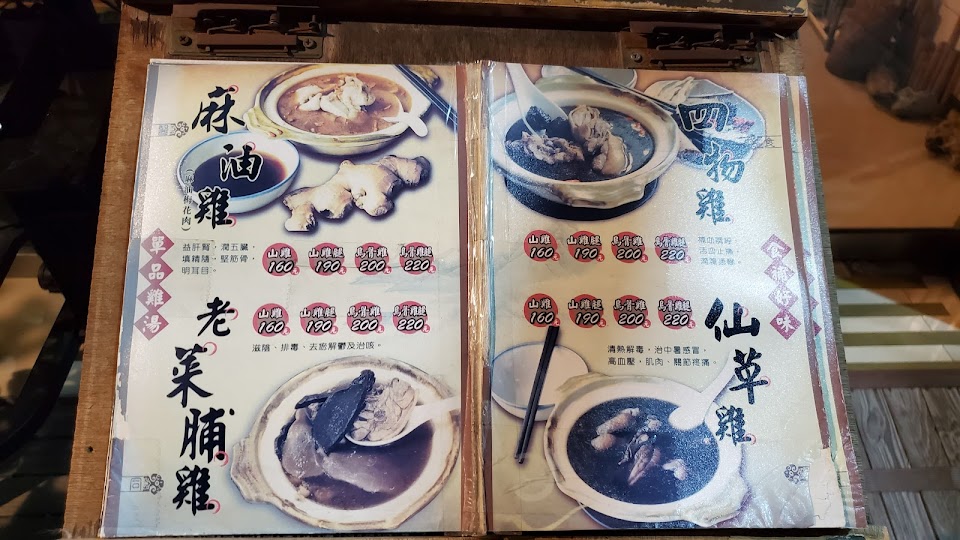 麻油雞
(麻油梅花肉)
單品雞湯
益肝腎，潤五臟，
填精隨、堅筋骨，
明耳目。
山雞 160元
山雞腿 190元
烏骨雞 200元
烏骨雞腿 220元
老菜脯雞
山雞 160元
山雞腿 190元
烏骨雞 200元
烏骨雞腿 220元
滋陰、排毒、去瘀解鬱及治咳。
四物雞
食滿好味
山雞 160元
山雞腿 190元
烏骨雞 200元
烏骨雞腿 220元
補血調經
活血止痛
仙草雞
山雞 160元
山雞腿 190元
烏骨雞 200元
烏骨雞腿 220元
清熱解毒，治中暑感冒，
高血壓，肌肉、關節疼痛。